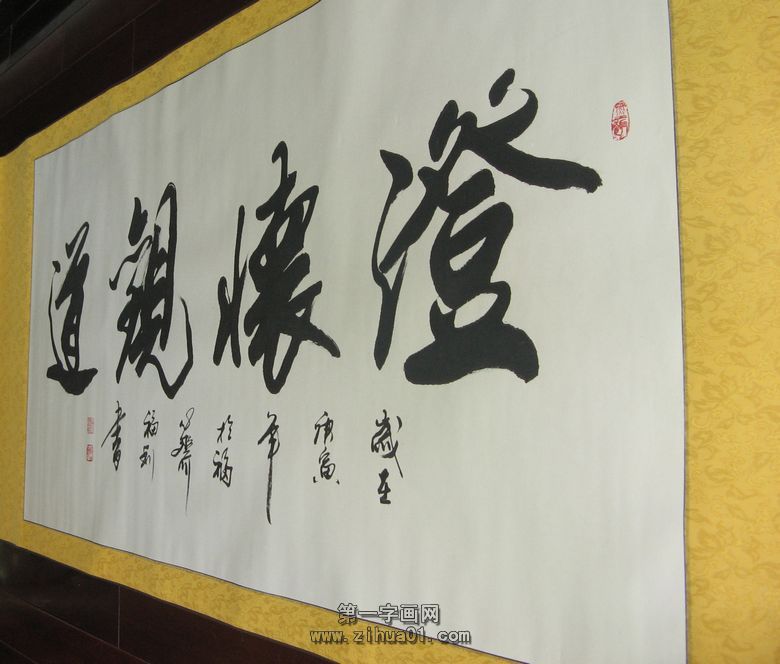 澄懷觀道
歲在
庚寅
年
於福
齊
福利
書
第一字画网
www.zihua01.com